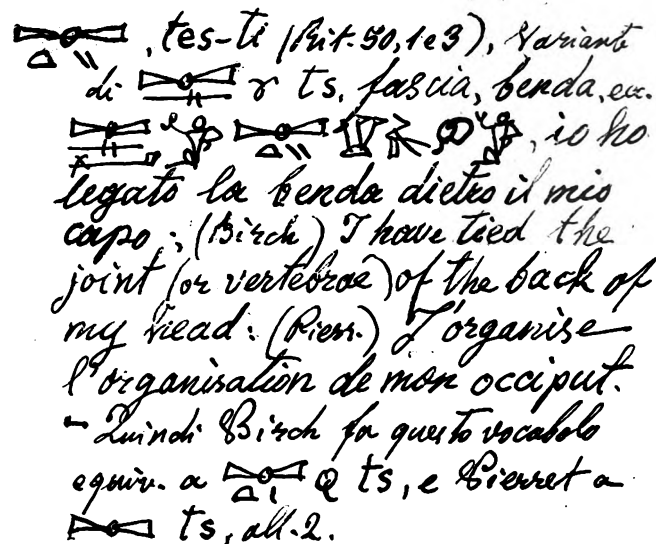 , tes-ti (Rit. 50, 1 e 3), Variante
di ts, fascia, benda, ecc.
, io ho
legato la benda dietro il mio
capo; (Birch) I have tied the
joint (or vertebrae) of the back of
my head: (Pierr.) J'organise
l'organisation de mon occiput.
- Quindi Birch fa questo vocabolo
equiv. a ts, e Pierret a
ts, all. 2.